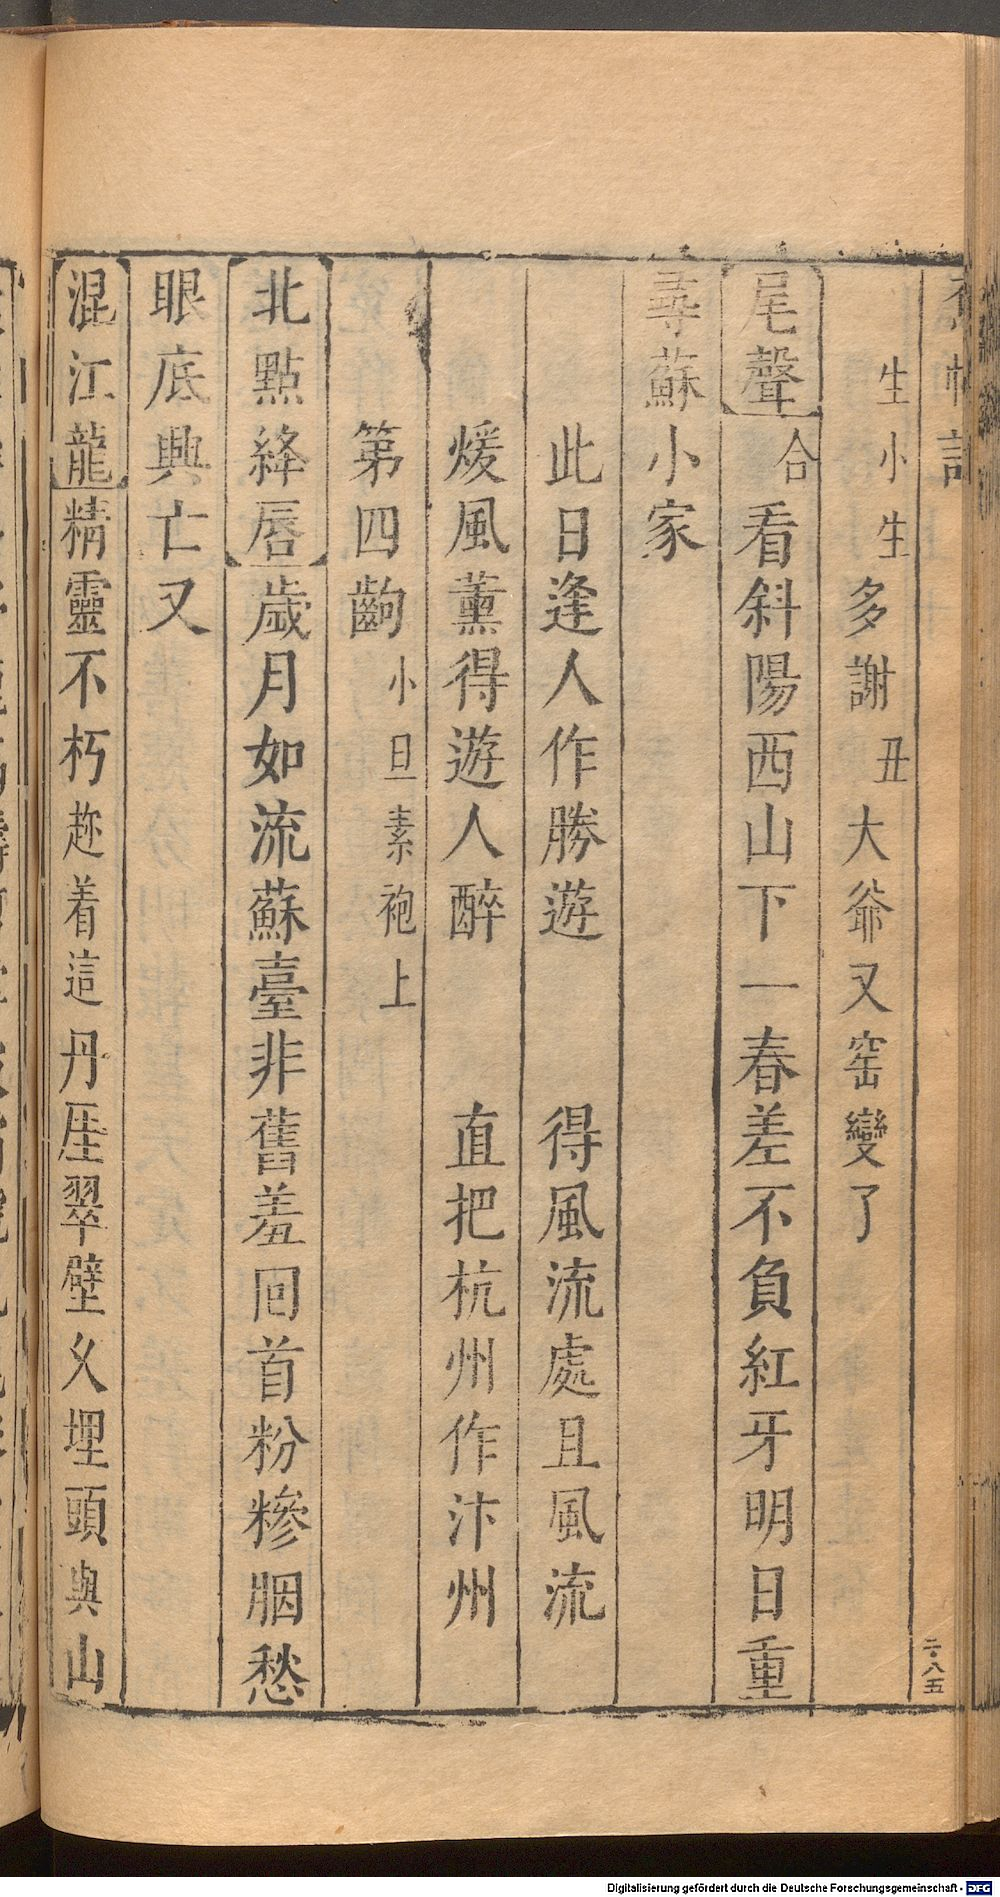 生小生多謝丑大爺又窑變了
尾聲合看斜陽西山下一春差不負紅牙明日重
尋蘇小家
此日逢人作勝遊 得風流處且風流
煖風薰得遊人醉 直把杭州作汴州
第四齣小旦素袍上
北點絳唇歲月如流蘇臺非舊羞囘首粉糝胭愁
眼底興亡又
混江龍精靈不朽趂着這丹厓翠壁久埋頭與山
二·八五
Digitalisierung gefördert durch die Deutsche Forschungsgemeinschaft - DFG